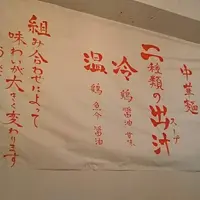 中華麺
二種類の出汁
スープ
冷 鶏 醤油 甘味
温 鶏 魚介 醤油
組み合わせによって
味わいが大きく変わります